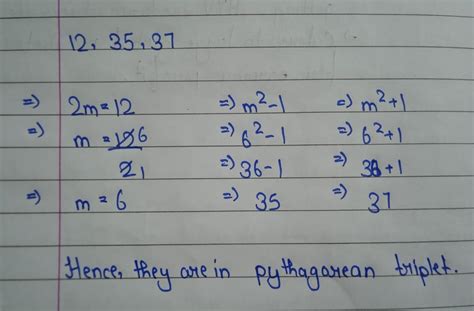 12, 35, 37
=) 2m = 12 =) m²-1 =) m²+1
=) m = 12 6 =) 6²-1 =) 6²+1
2 1 =) 36-1 =) 36+1
=) m = 6 =) 35 =) 37
Hence, they are in pythagarean triplet.